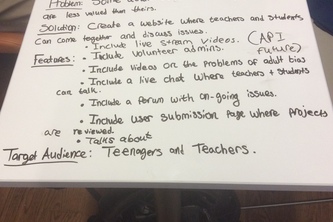 Problem: Some
are less valued than theirs.
Solution: Create a website where teachers and students
can come together and discuss issues.
• Include live stream videos. (API
Features: • Include volunteer admins. future)
• Include videos on the problems of adult bias
• Include a live chat where teachers + students
can talk.
• Include a forum with on-going issues.
• Include user submission page where projects
are reviewed.
• Talks about
Target Audience: Teenagers and Teachers.